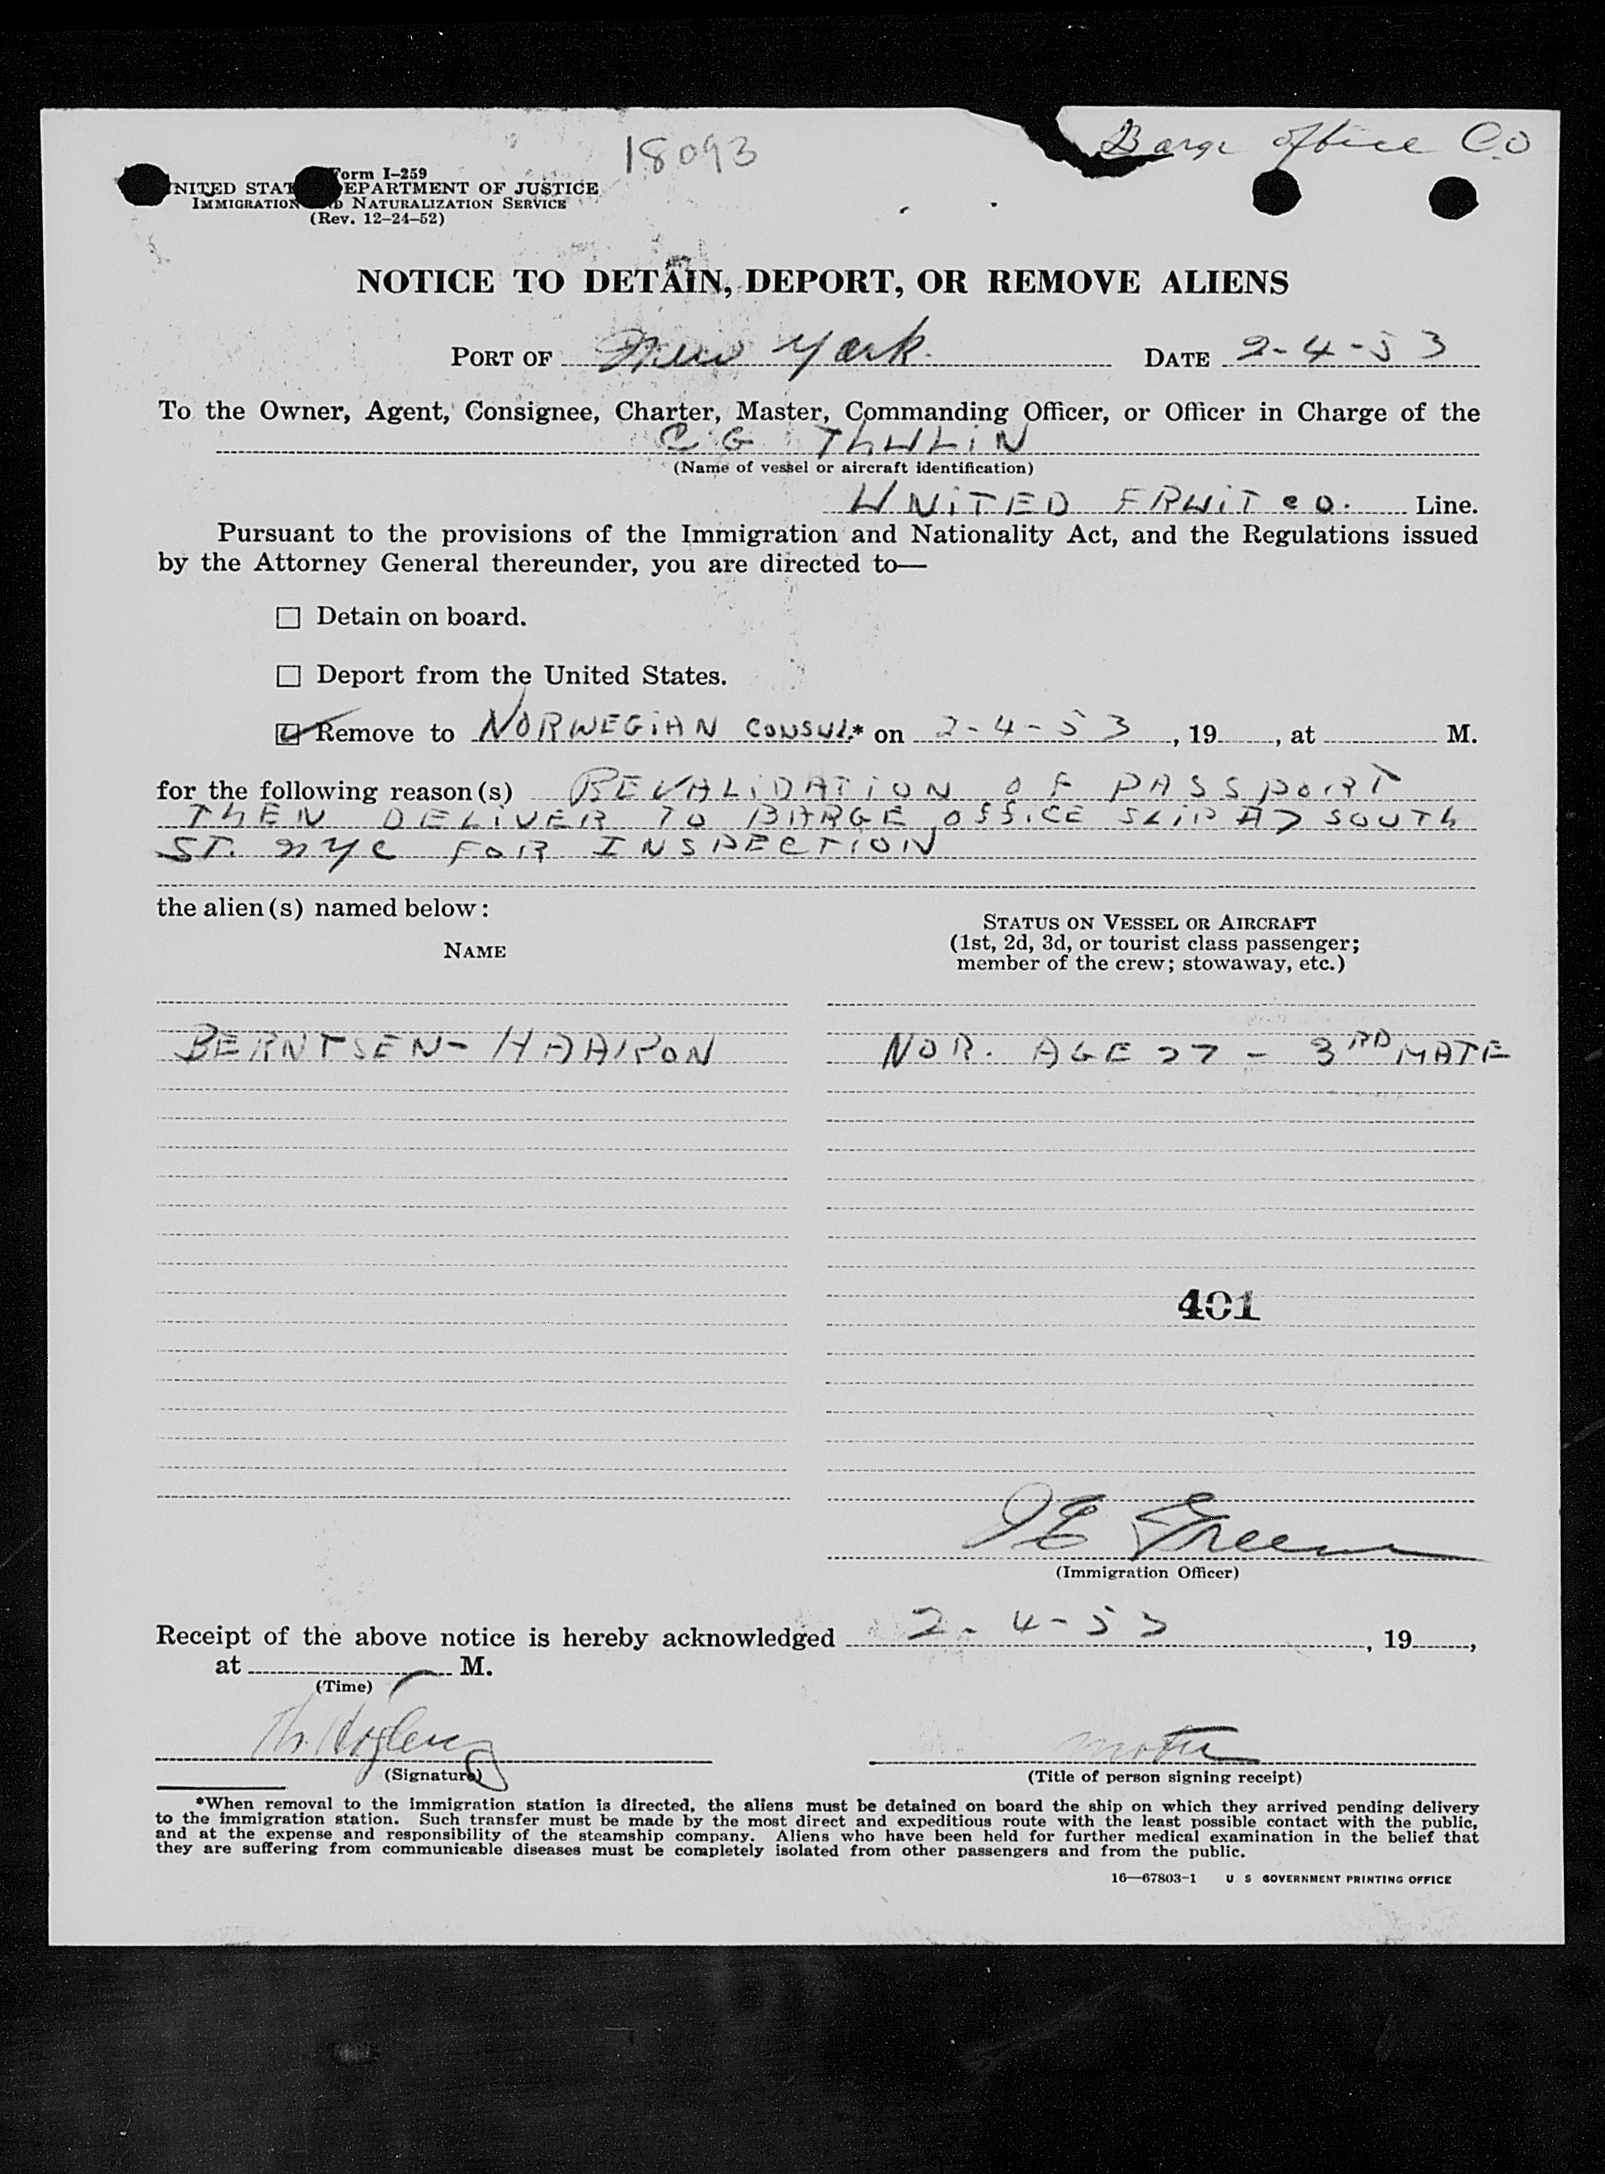 18093
Barge office CO
Form I-259
UNITED STATES DEPARTMENT OF JUSTICE
IMMIGRATION AND NATURALIZATION SERVICE
(Rev. 12-24-52)
NOTICE TO DETAIN, DEPORT, OR REMOVE ALIENS
PORT OF New York. DATE 2-4-53
To the Owner, Agent, Consignee, Charter, Master, Commanding Officer, or Officer in Charge of the
C G ThULIN
(Name of vessel or aircraft identification)
UNITED FRUIT CO. Line.
Pursuant to the provisions of the Immigration and Nationality Act, and the Regulations issued
by the Attorney General thereunder, you are directed to—
☐ Detain on board.
☐ Deport from the United States.
☑ Remove to NORWEGIAN CONSUL* on 2-4-53, 19, at M.
for the following reason(s) REVALIDATION OF PASSPORT
ThEN DELIVER TO BARGE OFFICE SLIP AT SOUTh
ST. NYC FOR INSPECTION
the alien(s) named below:
NAME
STATUS ON VESSEL OR AIRCRAFT
(1st, 2d, 3d, or tourist class passenger;
member of the crew; stowaway, etc.)
BERNTSEN- HAAKON NOR. AGE 27 - 3RD MATE
401
(Immigration Officer)
Receipt of the above notice is hereby acknowledged 2-4-53, 19,
at M.
(Time)
(Signature)
(Title of person signing receipt)
*When removal to the immigration station is directed, the aliens must be detained on board the ship on which they arrived pending delivery
to the immigration station. Such transfer must be made by the most direct and expeditious route with the least possible contact with the public,
and at the expense and responsibility of the steamship company. Aliens who have been held for further medical examination in the belief that
they are suffering from communicable diseases must be completely isolated from other passengers and from the public.
16—67803-1 U S GOVERNMENT PRINTING OFFICE